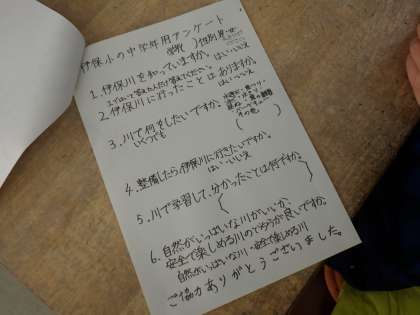 伊保小の中学年用アンケート
学年 )性別(男・女
1.伊保川を知っていますか。はい・いいえ
2.伊保川に行ったことはありますか。
はい・いいえ
3.川で何をしたいですか。
いくつでも
その他
4.整備したら、伊保川に行きたいですか。
はい・いいえ
5.川で学習して、分かったことは何ですか。
( )
6.自然がいっぱいな川がいいか、
安全で楽しめる川のどちらが良いですか。
自然がいっぱいな川・安全で楽しめる川
ご協力ありがとうございました。